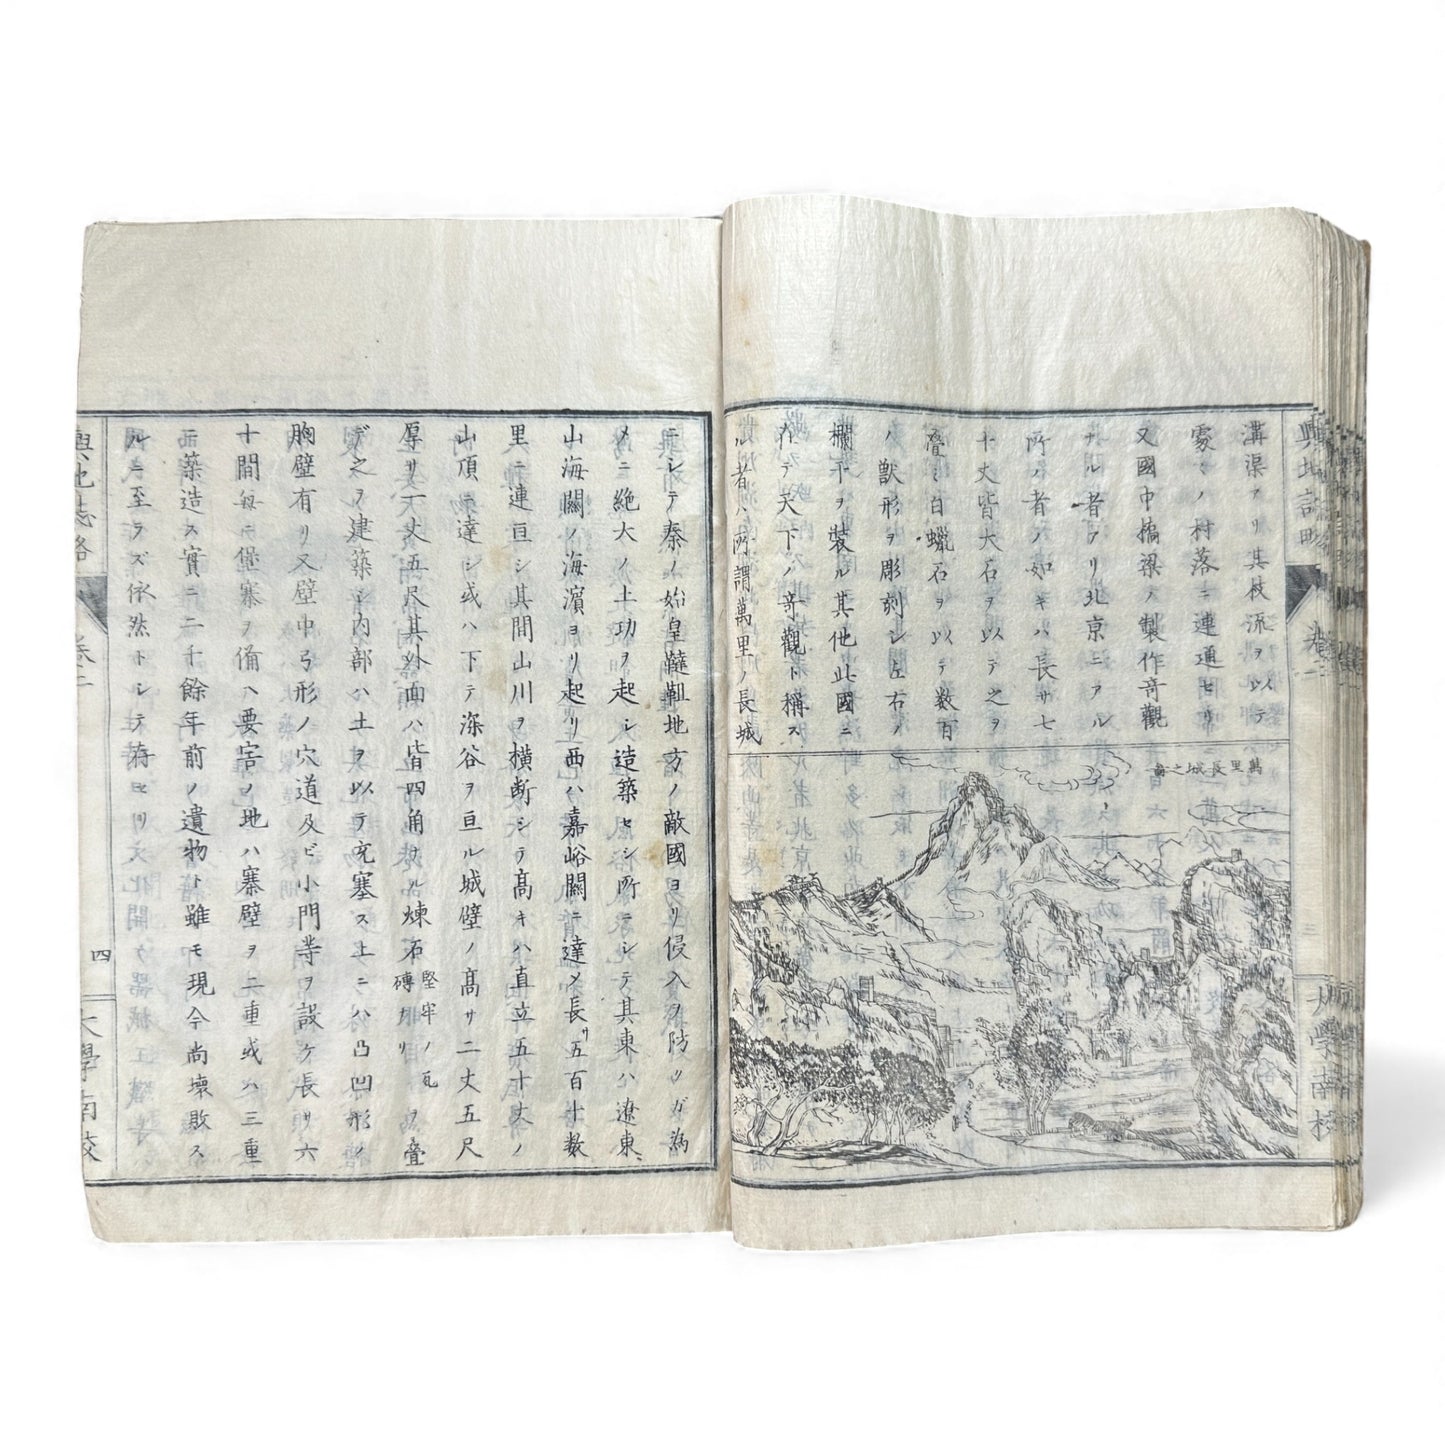 溝渠アリ其枝流ヲ以テ
家々ノ村落ニ連通セリ
又國中橋梁ノ製作奇觀
ナル者アリ北京ニアル
所ノ者ノ如キハ長サ七
十丈皆大石ヲ以テ之ヲ
疊ミ白蠟石ヲ以テ數百
ノ獸形ヲ彫刻シ左右ノ
欄干ヲ裝ル其他此國ニ
在テ天下ノ奇觀ト稱ス
ル者ハ所謂萬里ノ長城
萬里長城之圖
ニシテ秦ノ始皇韃靼地方ノ敵國ヨリ侵入ヲ防クガ為
メニ絶大ノ土功ヲ起シ造築セシ所ニシテ其東ハ遼東
山海關ノ海濵ヨリ起リ西ハ嘉峪關ニ達メ長サ五百十數
里ニ連亘シ其間山川ヲ横断シテ髙キハ直立五十丈ノ
山頂ニ達シ或ハ下テ深谷ヲ亘ル城壁ノ髙サ二丈五尺
厚サ一丈五尺其外面ハ皆四角ナル煉石堅牢ノ瓦磚ナリヲ疊
デ之ヲ建築シ内部ハ土ヲ以テ充塞ス上ニハ凸凹形ノ
胸壁有リ又壁中弓形ノ穴道及ビ小門等ヲ設ケ長サ六
十間毎ニ堡寨ヲ備ヘ要害ノ地ハ寨壁ヲ二重或ハ三重
ニ築造ス實ニ二千餘年前ノ遺物ト雖モ現今尚壊敗ス
ルニ至ラズ依然トシテ存セリ文化開ケ器械工職等
輿地誌略
巻二
三
大學南校
輿地誌略
巻二
四
大學南校